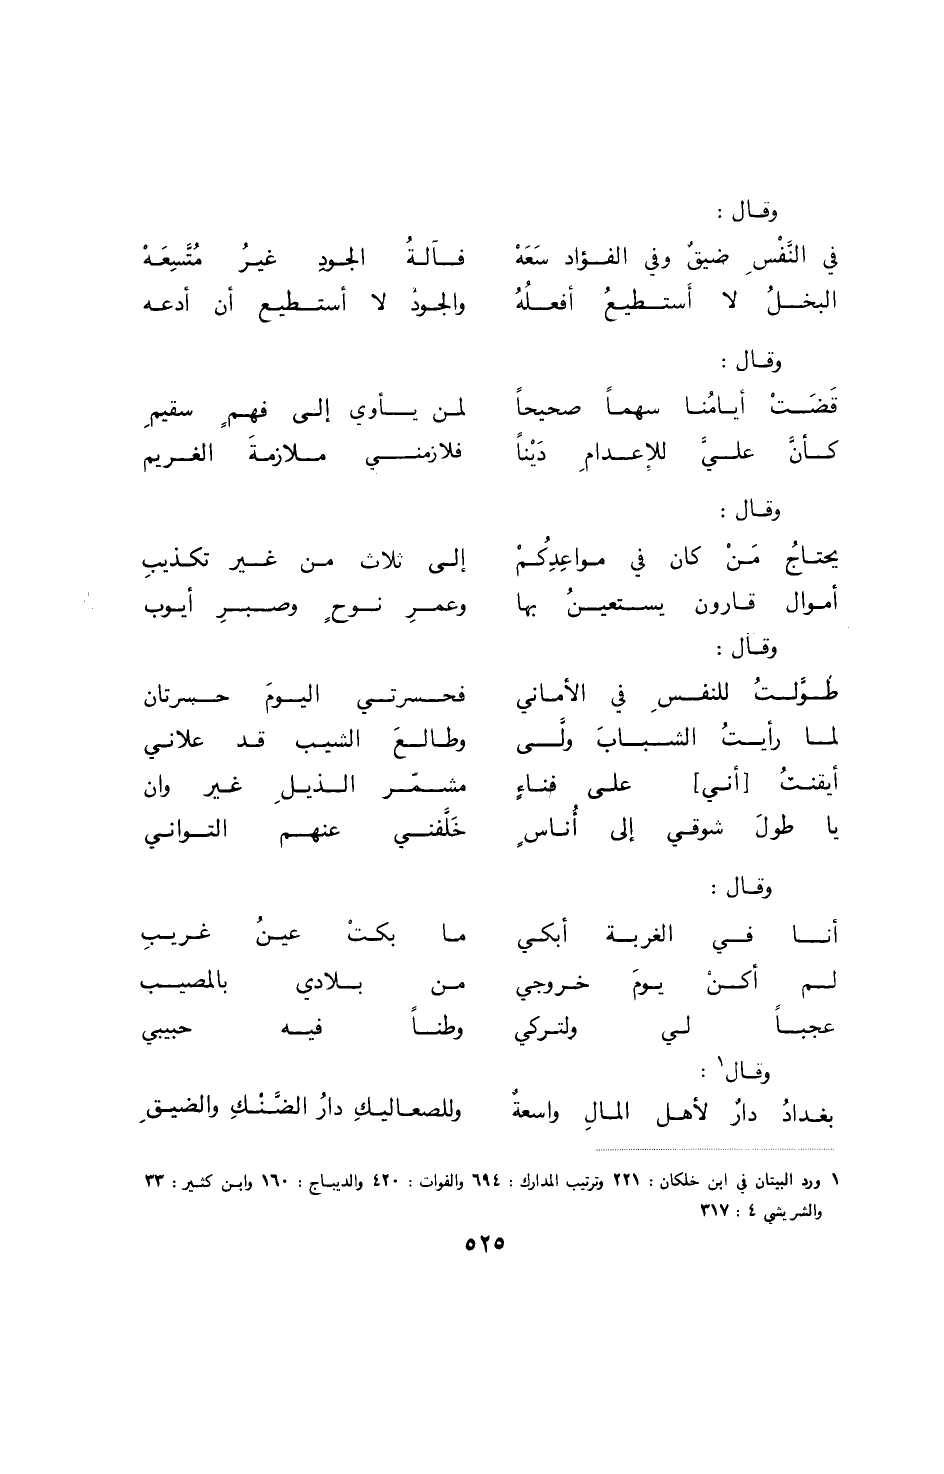 وقال :
في النَّفْسِ ضيقٌ وفي الفؤاد سَعَهْ فآلةُ الجودِ غيرُ مُتَّسِعَهْ
البخلُ لا أستطيعُ أفعلُهُ والجودُ لا أستطيع أن أدعه
وقال :
قَضَتْ أيامُنا سهماً صحيحاً لمن يأوي إلى فهمٍ سقيمِ
كأنَّ عليَّ للإعدامِ دَيْناً فلازمني ملازمةَ الغريم
وقال :
يحتاجُ مَنْ كان في مواعِدِكُمْ إلى ثلاث من غير تكذيبِ
أموال قارون يستعينُ بها وعمرِ نوحٍ وصبرِ أيوب
وقال :
طَوَّلتُ للنفسِ في الأماني فحسرتي اليومَ حسرتان
لما رأيتُ الشبابَ ولَّى وطالعَ الشيب قد علاني
أيقنتُ [أني] على فناءٍ مشمّر الذيلِ غير وان
يا طولَ شوقي إلى أُناسٍ خَلَّفني عنهم التواني
وقال :
أنا في الغربة أبكي ما بكتْ عينُ غريبِ
لم أكنْ يومَ خروجي من بلادي بالمصيب
عجباً لي ولتركي وطناً فيه حبيبي
وقال¹ :
بغدادُ دارٌ لأهل المالِ واسعةٌ وللصعاليكِ دارُ الضَّنْكِ والضيقِ
١ ورد البيتان في ابن خلكان : ٢٢١ وترتيب المدارك : ٦٩٤ والفوات : ٤٢٠ والديباج : ١٦٠ وابن كثير : ٣٣
والشريشي ٤ : ٣١٧
٥٢٥